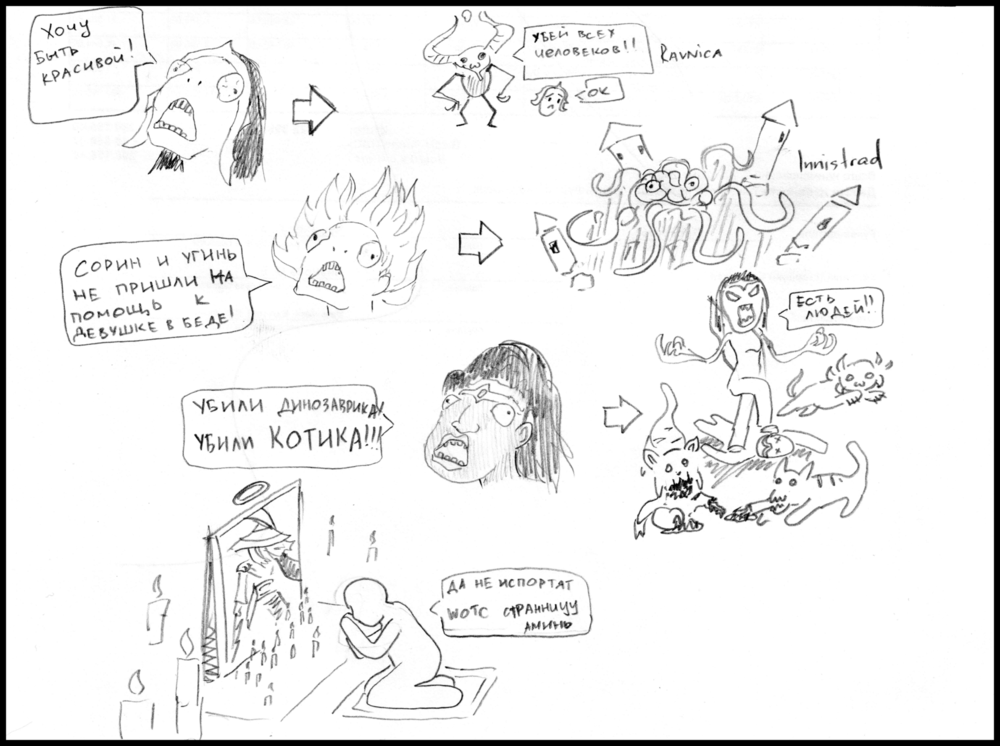 Хочу
быть
красивой!
Убей всех
человеков!!
Ravnica
ОК
Innistrad
Сорин и Угинь
не пришли на
помощь к
девушке в беде!
Есть
людей!!
Убили динозаврика!
Убили КОТИКА!!!
Да не испортат
WOTC странницу
аминь